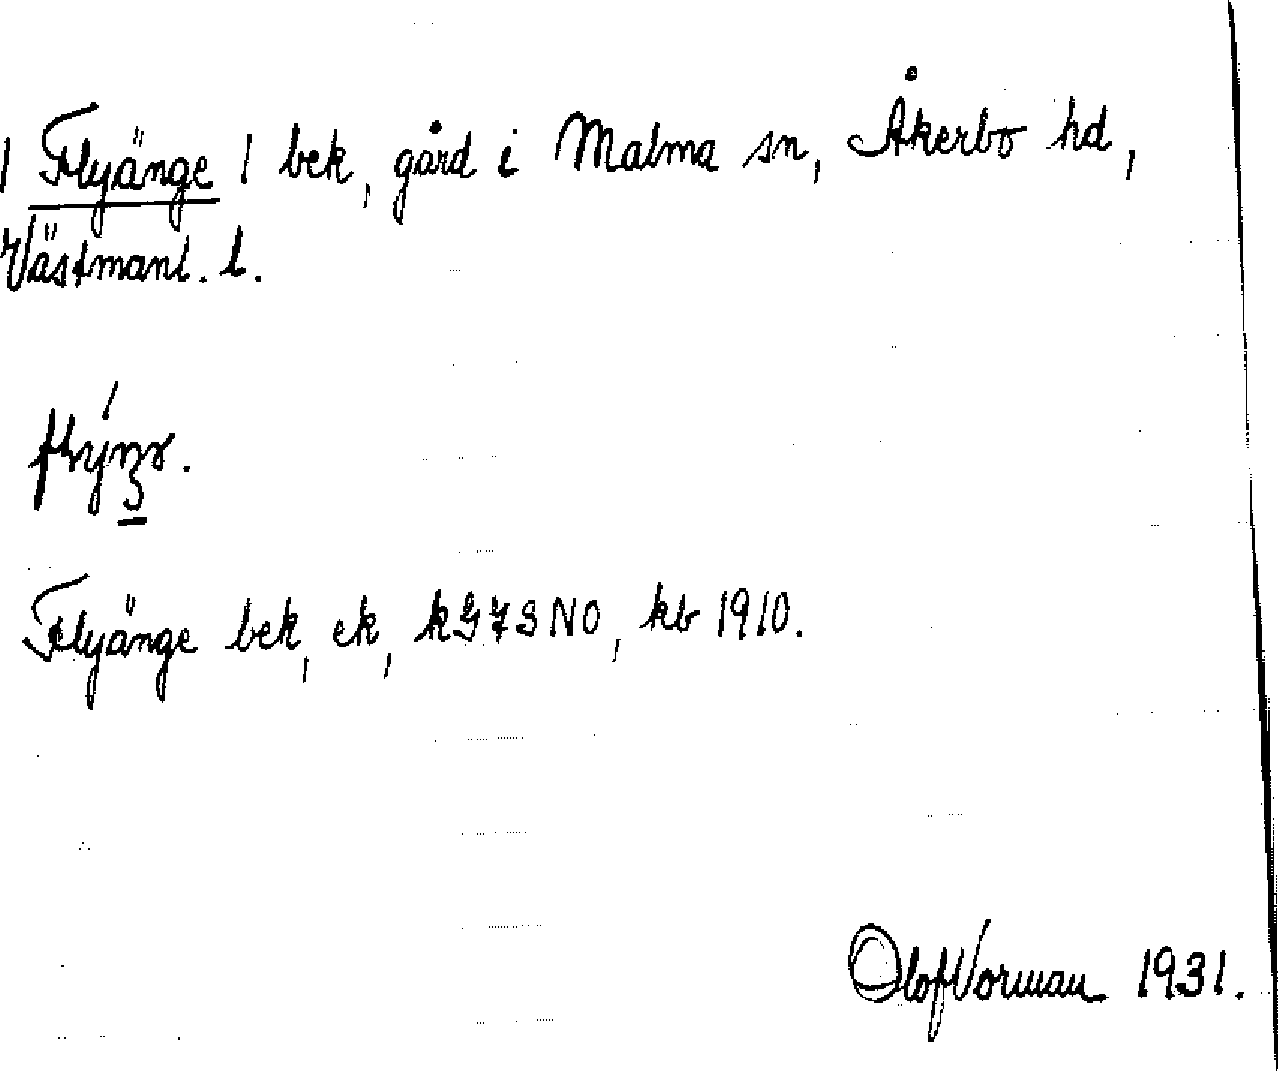 / Flyänge / bek, gård i Malma sn, Åkerbo hd,
Västmanl. l.
Flyänge bek, ek, kG73NO, kb 1910.
Olof Vorman 1931.